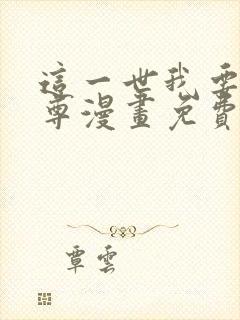 這一世我要
尊漫畫免費
覃雲